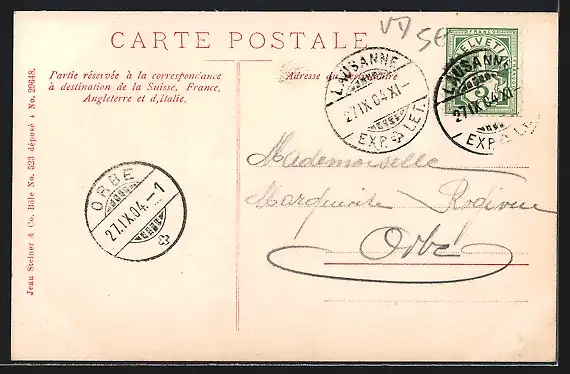 VD
CARTE POSTALE
Partie réservée à la correspondance
à destination de la Suisse, France,
Angleterre et d'Italie.
Adresse du destinataire
LAUSANNE
27.IX.04.XI-
EXP. LET.
FRANCO
HELVETIA
5
LAUSANNE
27.IX.04.XI-
EXP. LET.
ORBE
27.IX.04.-1
Mademoiselle
Marguerite Rogivue
Orbe
Jean Steiner & Co. Bâle No. 523 déposé + No. 29648.